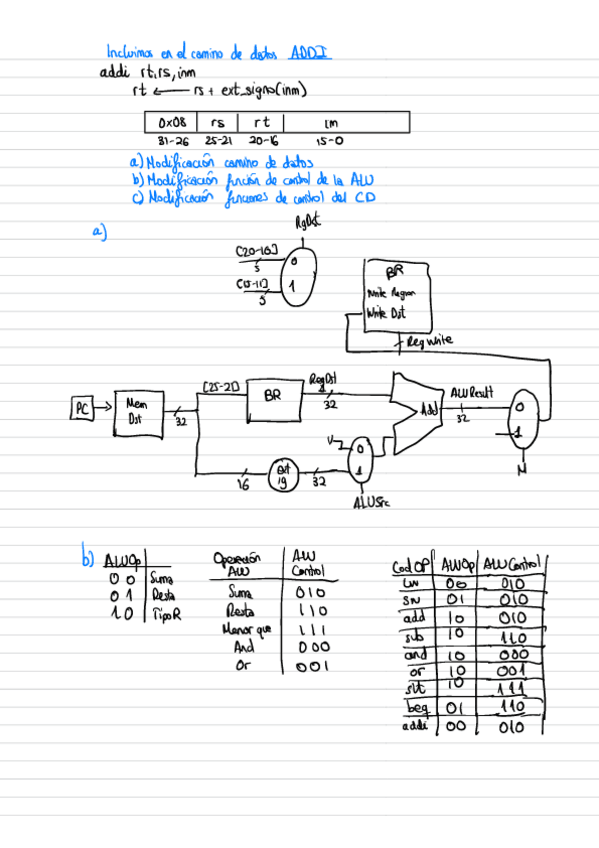 Incluimos en el camino de datos ADDI
addi rt,rs,inm
rt ← rs + ext_signo(inm)
0x08 rs rt im
31-26 25-21 20-16 15-0
a) Modificación camino de datos
b) Modificación función de control de la ALU
c) Modificación funciones de control del CD
a)
RgDst
[20-16] 5 0
[15-11] 5 1
BR
Write Dst
RegWrite
PC
Mem
Dst
32
[25-21]
BR
RegDst
32
Add
ALUResult
32
0
1
M
16
32
0
1
ALUSrc
b)
ALUOp
00 Suma
01 Resta
10 TipoR
Operación ALU ALU Control
Suma 010
Resta 110
Menor que 111
And 000
Or 001
CodOP ALUOp ALUControl
LW 00 010
SW 01 010
add 10 010
sub 10 110
and 10 000
or 10 001
slt 10 111
beq 01 110
addi 00 010